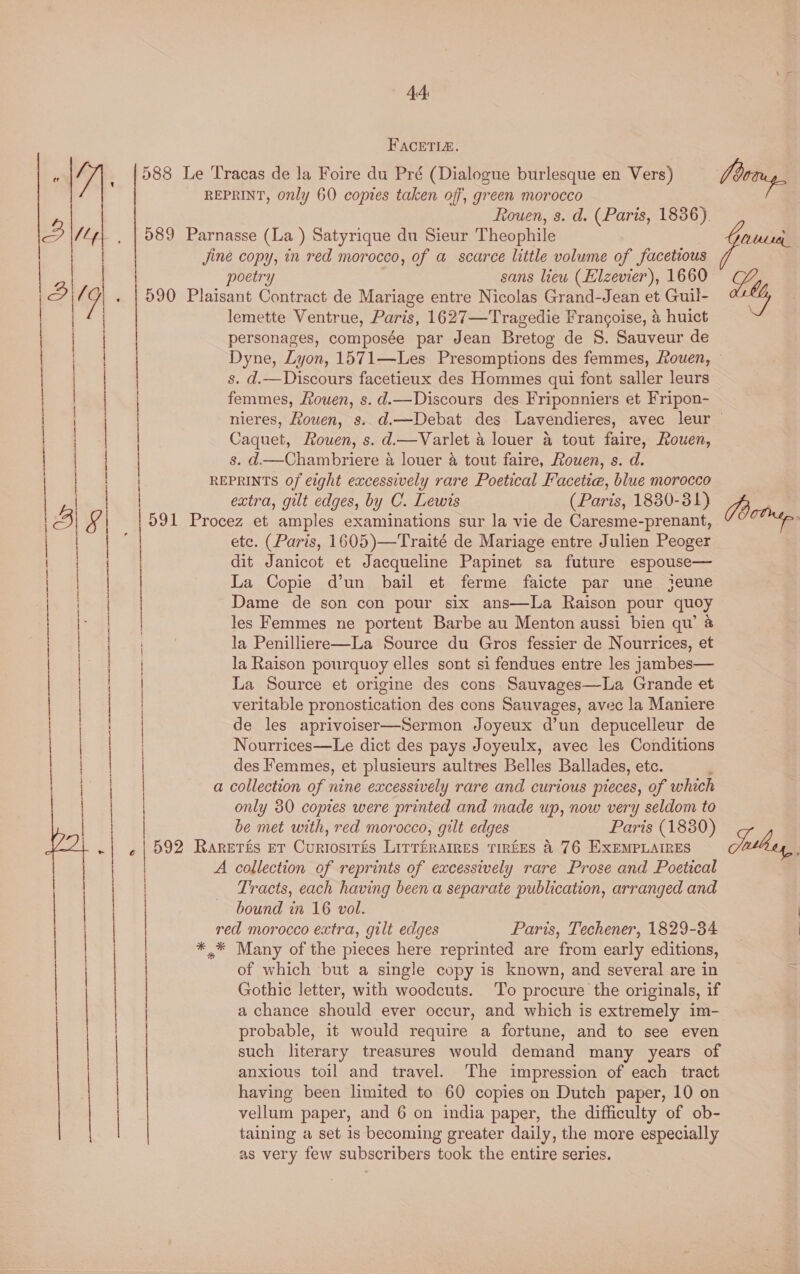 44
FACETIÆ.
17 . 588 Le Tracas de la Foire du Pré (Dialogue burlesque en Vers)
REPRINT, only 60 copies taken off, green morocco
Rouen, s. d. (Paris, 1836)
3 14 . 589 Parnasse (La ) Satyrique du Sieur Theophile
fine copy, in red morocco, of a scarce little volume of facetious
poetry sans lieu (Elzevier), 1660
3 19 . 590 Plaisant Contract de Mariage entre Nicolas Grand-Jean et Guil-
lemette Ventrue, Paris, 1627—Tragedie Françoise, à huict
personages, composée par Jean Bretog de S. Sauveur de
Dyne, Lyon, 1571—Les Presomptions des femmes, Rouen,
s. d.—Discours facetieux des Hommes qui font saller leurs
femmes, Rouen, s. d.—Discours des Friponniers et Fripon-
nieres, Rouen, s. d.—Debat des Lavendieres, avec leur
Caquet, Rouen, s. d.—Varlet à louer à tout faire, Rouen,
s. d.—Chambriere à louer à tout faire, Rouen, s. d.
REPRINTS of eight excessively rare Poetical Facetiæ, blue morocco
extra, gilt edges, by C. Lewis (Paris, 1830-31)
3 8 . 591 Procez et amples examinations sur la vie de Caresme-prenant,
etc. (Paris, 1605)—Traité de Mariage entre Julien Peoger
dit Janicot et Jacqueline Papinet sa future espouse—
La Copie d'un bail et ferme faicte par une jeune
Dame de son con pour six ans—La Raison pour quoy
les Femmes ne portent Barbe au Menton aussi bien qu' à
la Penilliere—La Source du Gros fessier de Nourrices, et
la Raison pourquoy elles sont si fendues entre les jambes—
La Source et origine des cons Sauvages—La Grande et
veritable pronostication des cons Sauvages, avec la Maniere
de les aprivoiser—Sermon Joyeux d'un depucelleur de
Nourrices—Le dict des pays Joyeulx, avec les Conditions
des Femmes, et plusieurs aultres Belles Ballades, etc.
a collection of nine excessively rare and curious pieces, of which
only 30 copies were printed and made up, now very seldom to
be met with, red morocco, gilt edges Paris (1830)
22 . . 592 RARETÉS ET CURIOSITÉS LITTÉRAIRES TIRÉES à 76 EXEMPLAIRES
A collection of reprints of excessively rare Prose and Poetical
Tracts, each having been a separate publication, arranged and
bound in 16 vol.
red morocco extra, gilt edges Paris, Techener, 1829-34
*** Many of the pieces here reprinted are from early editions,
of which but a single copy is known, and several are in
Gothic letter, with woodcuts. To procure the originals, if
a chance should ever occur, and which is extremely im-
probable, it would require a fortune, and to see even
such literary treasures would demand many years of
anxious toil and travel. The impression of each tract
having been limited to 60 copies on Dutch paper, 10 on
vellum paper, and 6 on india paper, the difficulty of ob-
taining a set is becoming greater daily, the more especially
as very few subscribers took the entire series.